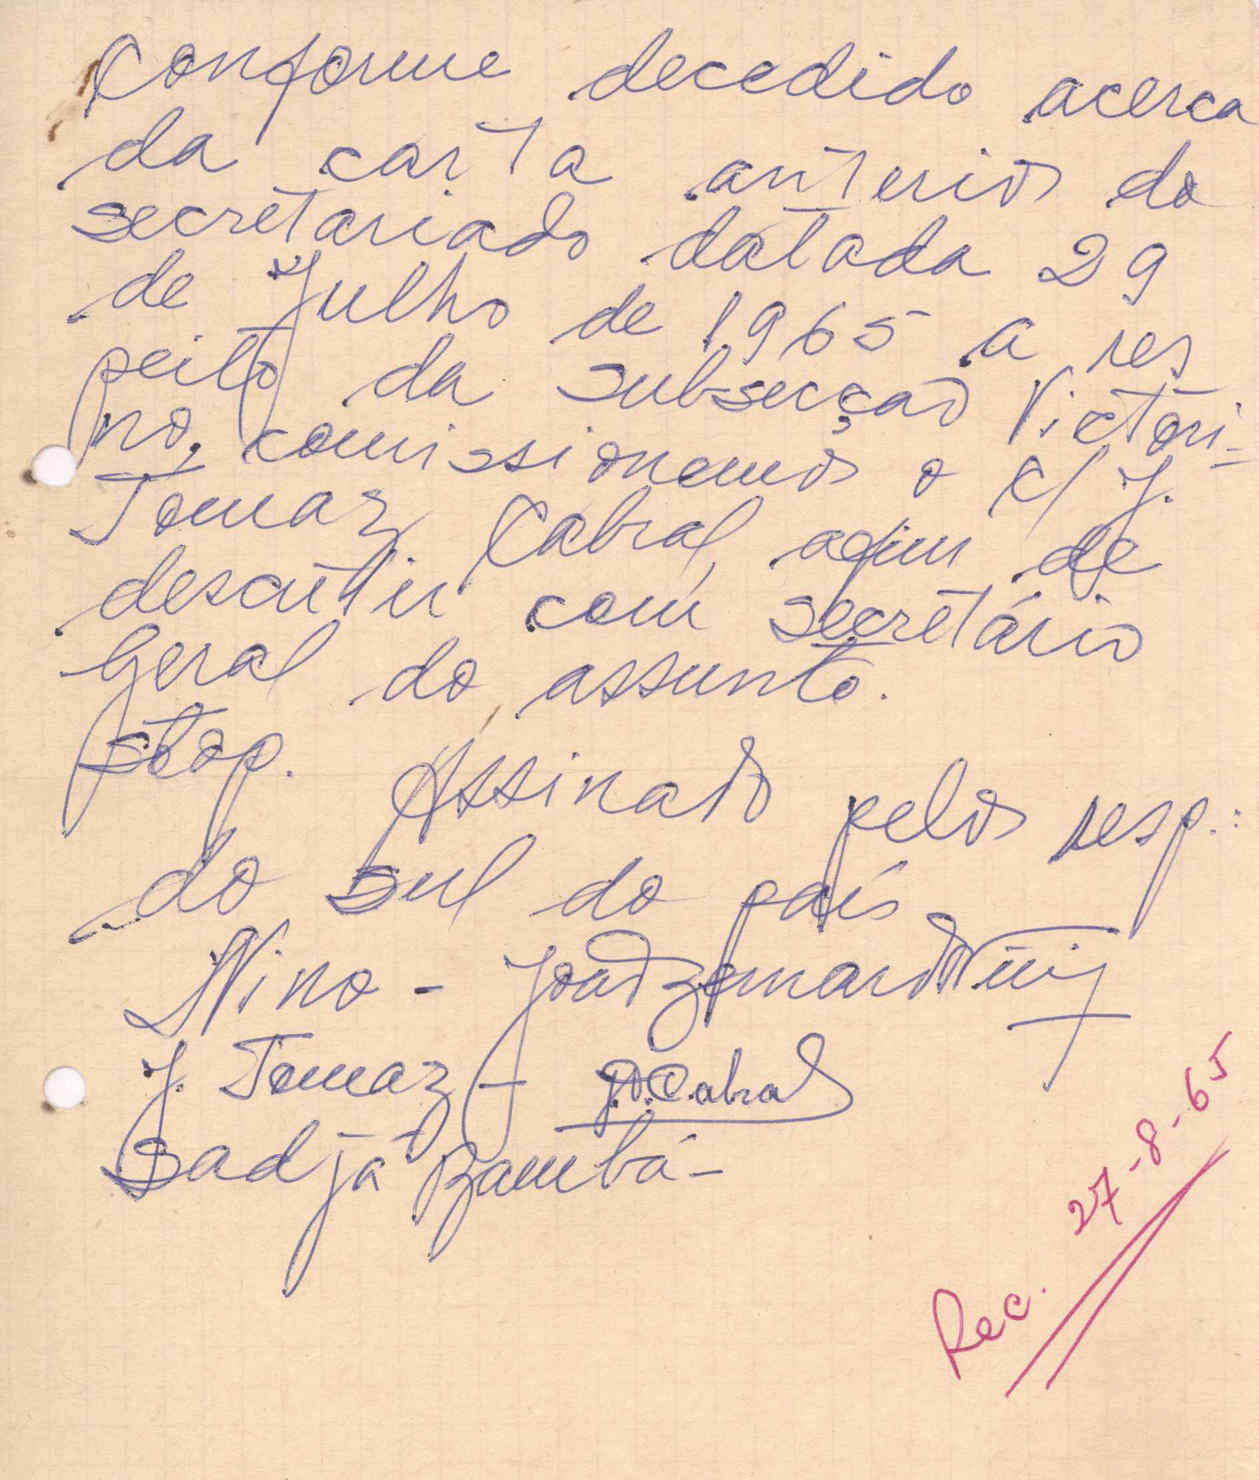 Conforme decedido acerca
da carta anterior do
secretariado datada 29
de Julho de 1965 a res
peito da subsecção Victori-
no, comissionemos o c/ J.
Tomaz Cabral, afim de
descutir com secretário
Geral do assunto.
stop.
Assinado pelos resp.:
do sul do país
Nino -
J. Tomaz - J.T.Cabral
Sadjá Bambá -
Rec. 27-8-65